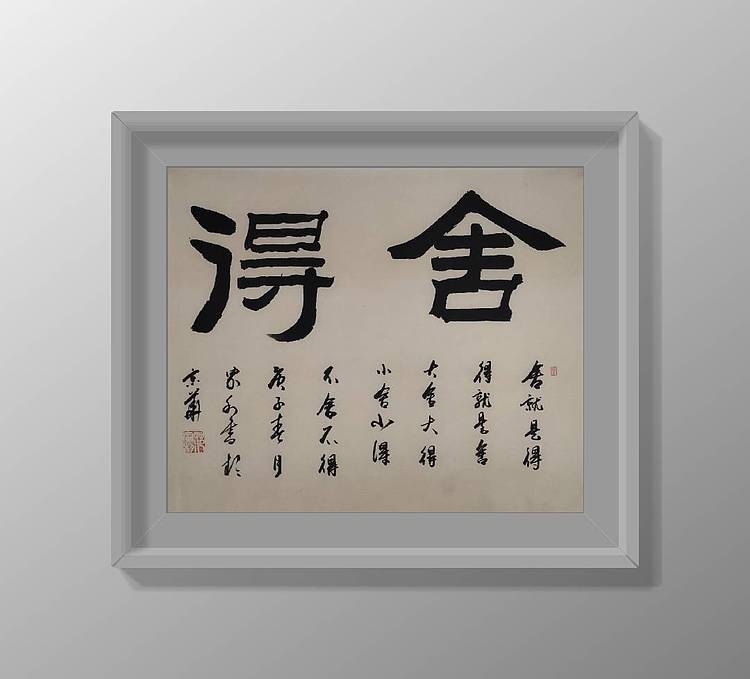 舍得
舍就是得
得就是舍
大舍大得
小舍小得
不舍不得
庚子春月
书於
京華